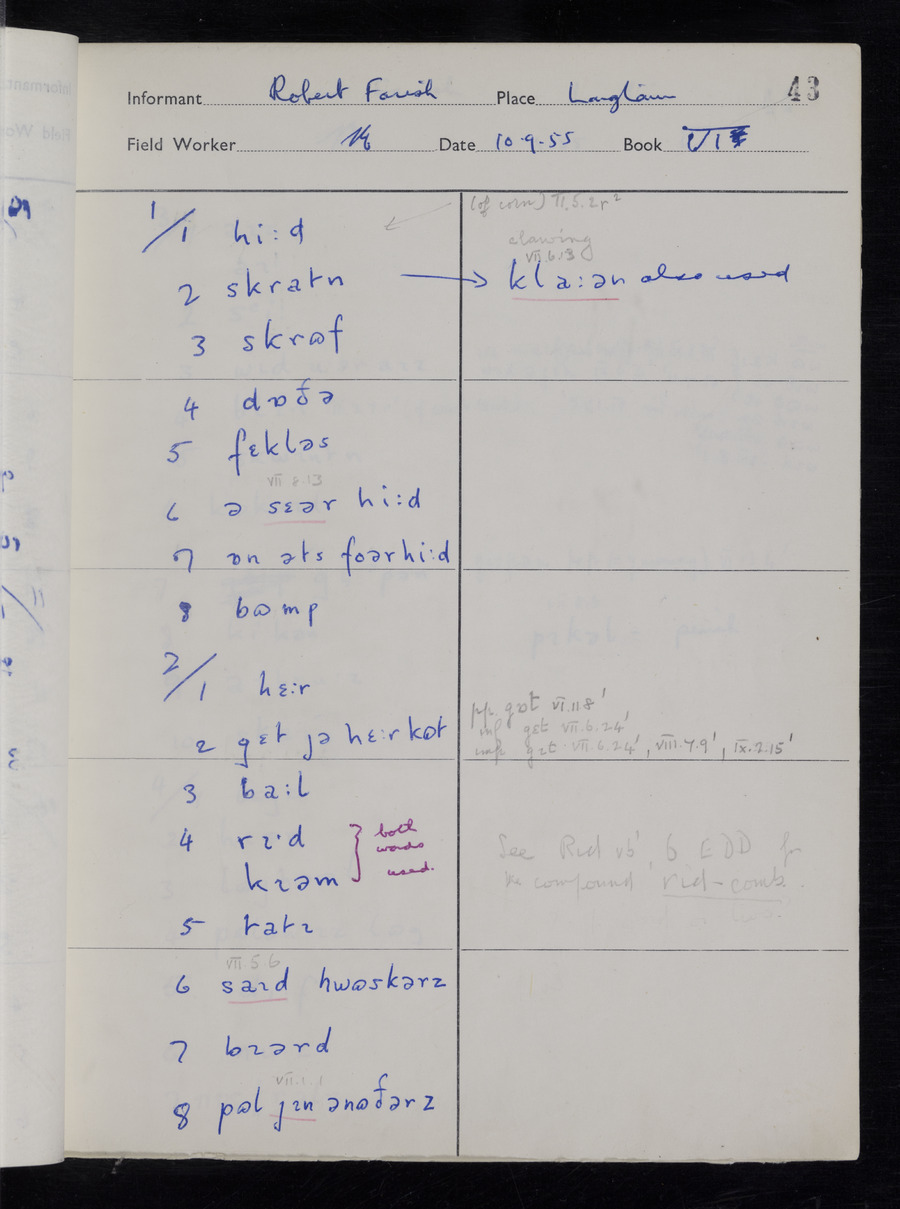 43
Informant Robert Farish Place Longtown
Field Worker Date 10·9·55 Book VI
1/1 hi:d
(of corn) II.5.2r²
clawing
VII.6.13
2 skratn → kla:ən also used
3 skrɷf
4 dɒðə
5 fɛkləs
VII 8.13
6 ə sɛər hi:d
7 ɒn əts foərhi:d
8 bɷmp
2/1 hɛ:r
pp. gɒt VI.11 8'
inf gɛt VII.6.24'
2 gɛt jə hɛ:rkɷt
imp gɪt VII.6.24', VIII.7.9', IX.2.15'
3 ba:l
4 rɪ·d } both
words
kɪəm } used.
See Rid vb', 6 EDD for
the compound rid-comb.
5 tatɪ
VII 5.6
6 saɪd hwɷskərz
7 bɪərd
VII.1.1
8 pɷl jɪn ənɷðərz